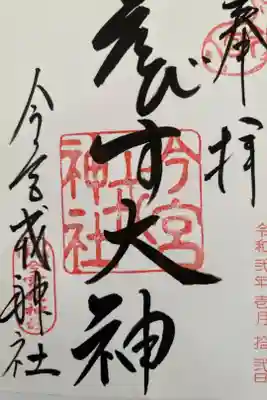 奉拝
令和弐年壱月拾弐日
ゑびす大神
今宮戎神社
今宮戎神社